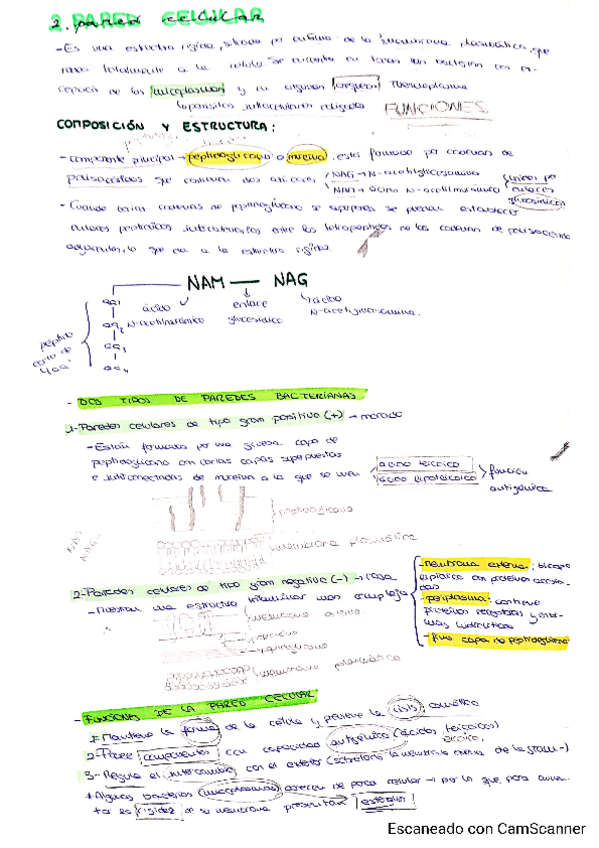 2. PARED CELULAR
- Es una estructura rígida, situada por encima de la membrana plasmática, que
rodea totalmente a la célula. Se encuentra en todas las bacterias con ex-
cepción de los micoplasmas y en algunas arqueas Thermoplasma
parásitos intracelulares obligados FUNCIONES
COMPOSICIÓN Y ESTRUCTURA:
- componente principal → peptidoglicano o mureína, está formado por cadenas de
polisacáridos que contienen dos NAG → N-acetilglucosamina unidos por
NAM → ácido N-acetilmurámico enlaces
glucosídicos
- Cuando varias cadenas de peptidoglicano se superponen se pueden establecer
enlaces peptídicos entre los tetrapéptidos de las cadenas de polisacárido
adyacentes, lo que da a la estructura rigidez.
NAM — NAG
aa1 ácido enlace ácido
aa2 N-acetilmurámico glucosídico N-acetilglucosamina.
aa3
aa4
péptido
corto de
4aa
- DOS TIPOS DE PAREDES BACTERIANAS
1-Paredes celulares de tipo gram positivo (+) → morado
- Están formadas por una gruesa capa de
peptidoglicano con varias capas superpuestas
de mureína a la que se unen ácido teicoico
ácido lipoteicoico función
antigénica
peptidoglicano
membrana plasmática
NAM
NAG
2-Paredes celulares de tipo gram negativo (-) → rosa
- Muestran una estructura laminar más compleja
- membrana externa: bicapa
lipídica con proteínas asocia-
das
- periplasma: contiene
proteínas receptoras y enzi-
mas hidrolíticas
- fina capa de peptidoglicano
membrana externa
periplasma
peptidoglicano
membrana plasmática
- FUNCIONES DE LA PARED CELULAR
1- Mantiene la forma de la célula y previene la lisis osmótica
2- Posee componentes con capacidad antigénica (ácidos teicoicos)
3- Regula el intercambio con el exterior (sobretodo la membrana externa de la gram -)
* Algunas bacterias (micoplasmas) carecen de pared celular → por lo que para aumen-
tar la rigidez de su membrana presentan esteroles
Escaneado con CamScanner